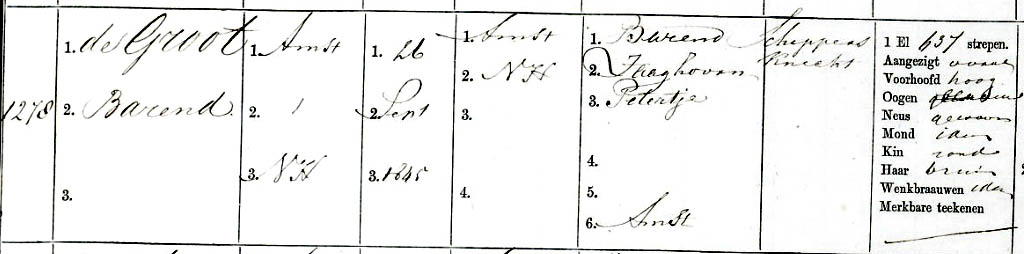 1278
1. de Groot
2. Barend
3.
1. Amst
2. 1
3. NH
1. 26
2. Sept
3. 1845
1. Amst
2. NH
3.
4.
1. Barend
2. Zaaghoven
3. Petertje
4.
5.
6. Amst
Schippers
Knecht
1 El 637 strepen.
Aangezigt ovaal
Voorhoofd hoog
Oogen
Neus gewoon
Mond idem
Kin rond
Haar bruin
Wenkbraauwen idem
Merkbare teekenen